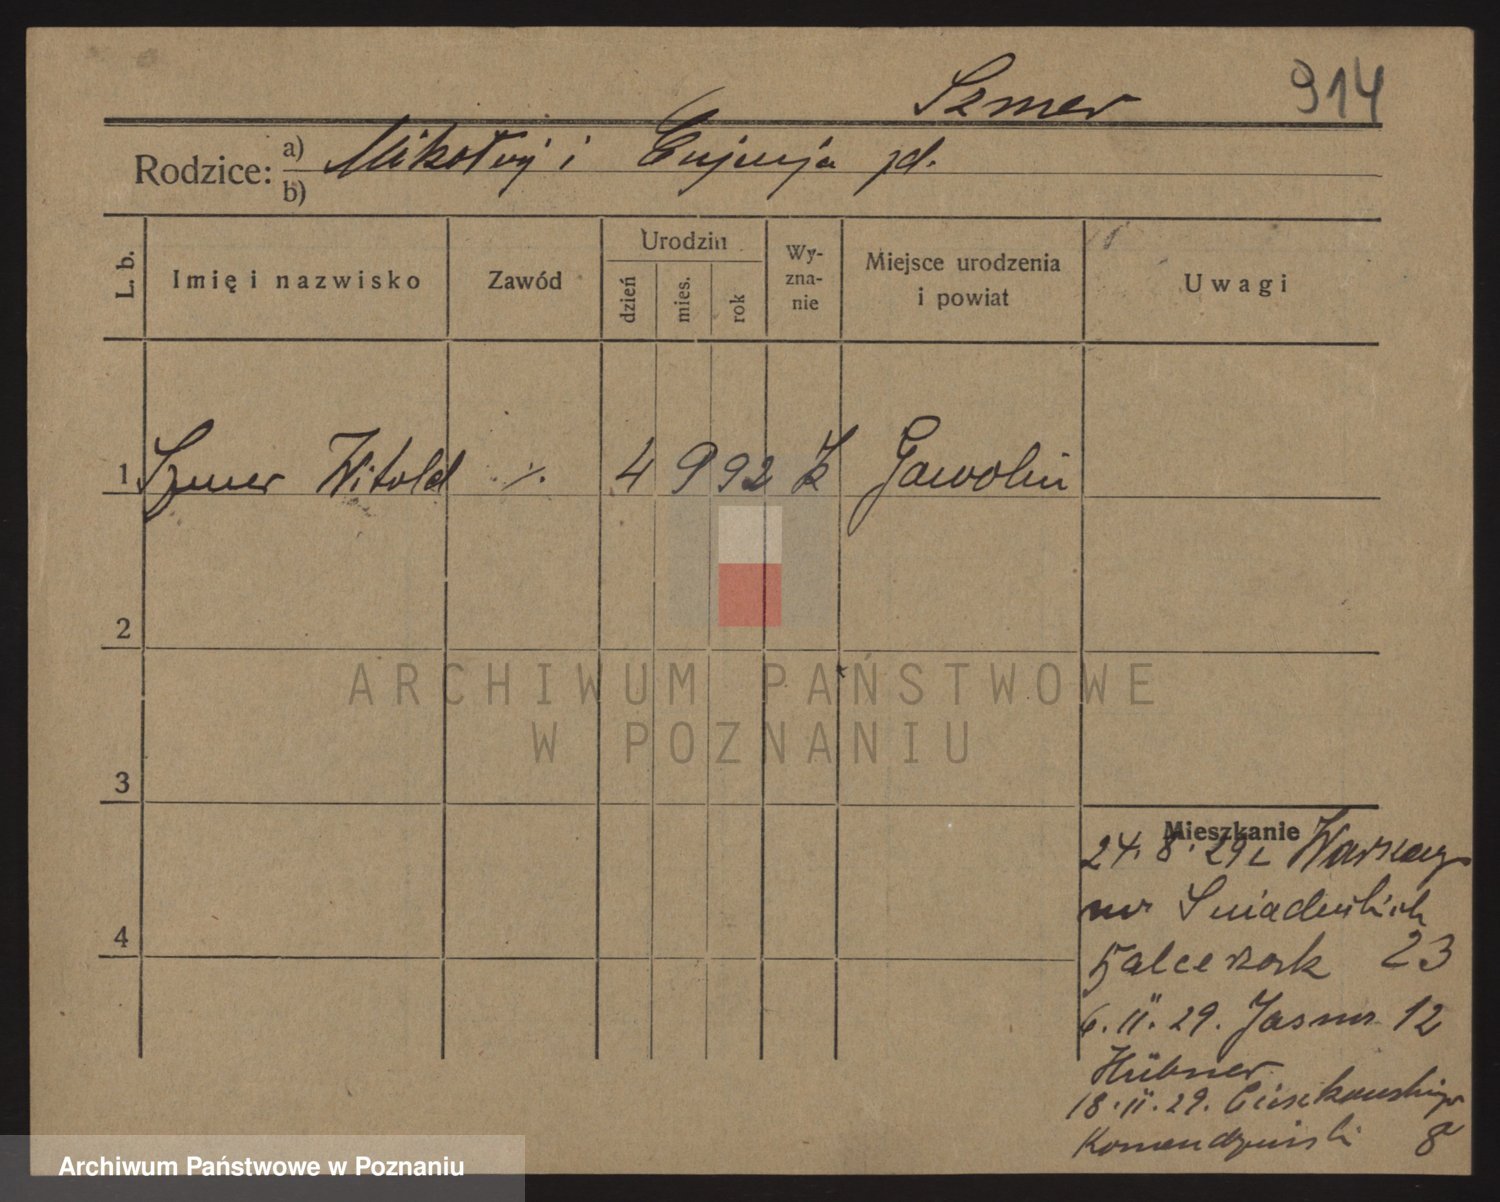 Szmer 914
Rodzice: a) Mikołaj i Eugenja zd.
b)
L. b. Imię i nazwisko Zawód Urodzin dzień mies. rok Wyznanie Miejsce urodzenia i powiat Uwagi
1 Szmer Witold ./. 4 9 92 Gawolin
2
3
4
Mieszkanie
24. 8. 29 z Warszawy
Śniadeckich
Balcerzak 23
6. 11. 29. Jasna 12
Hübner
18. 11. 29. Cieszkowskiego
8
ARCHIWUM PAŃSTWOWE
W POZNANIU
Archiwum Państwowe w Poznaniu